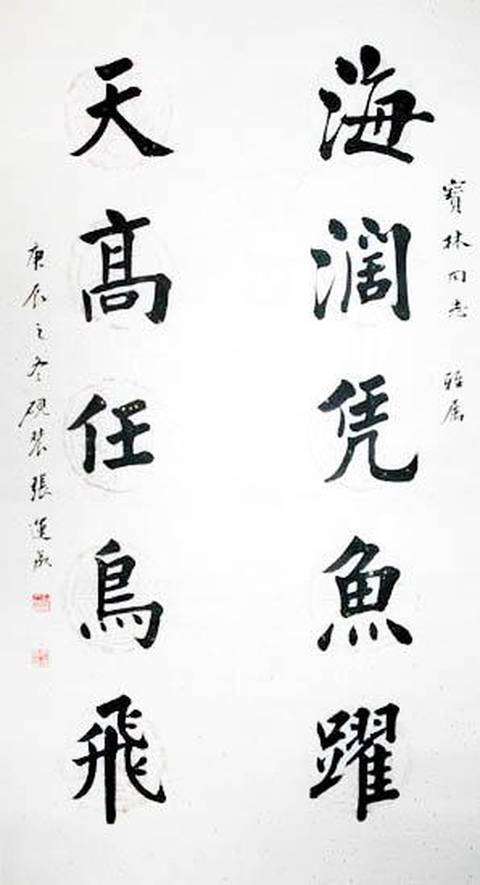 寶林同志 雅属
海濶凭魚躍
天髙任鳥飛
庚辰之冬硯農張運成